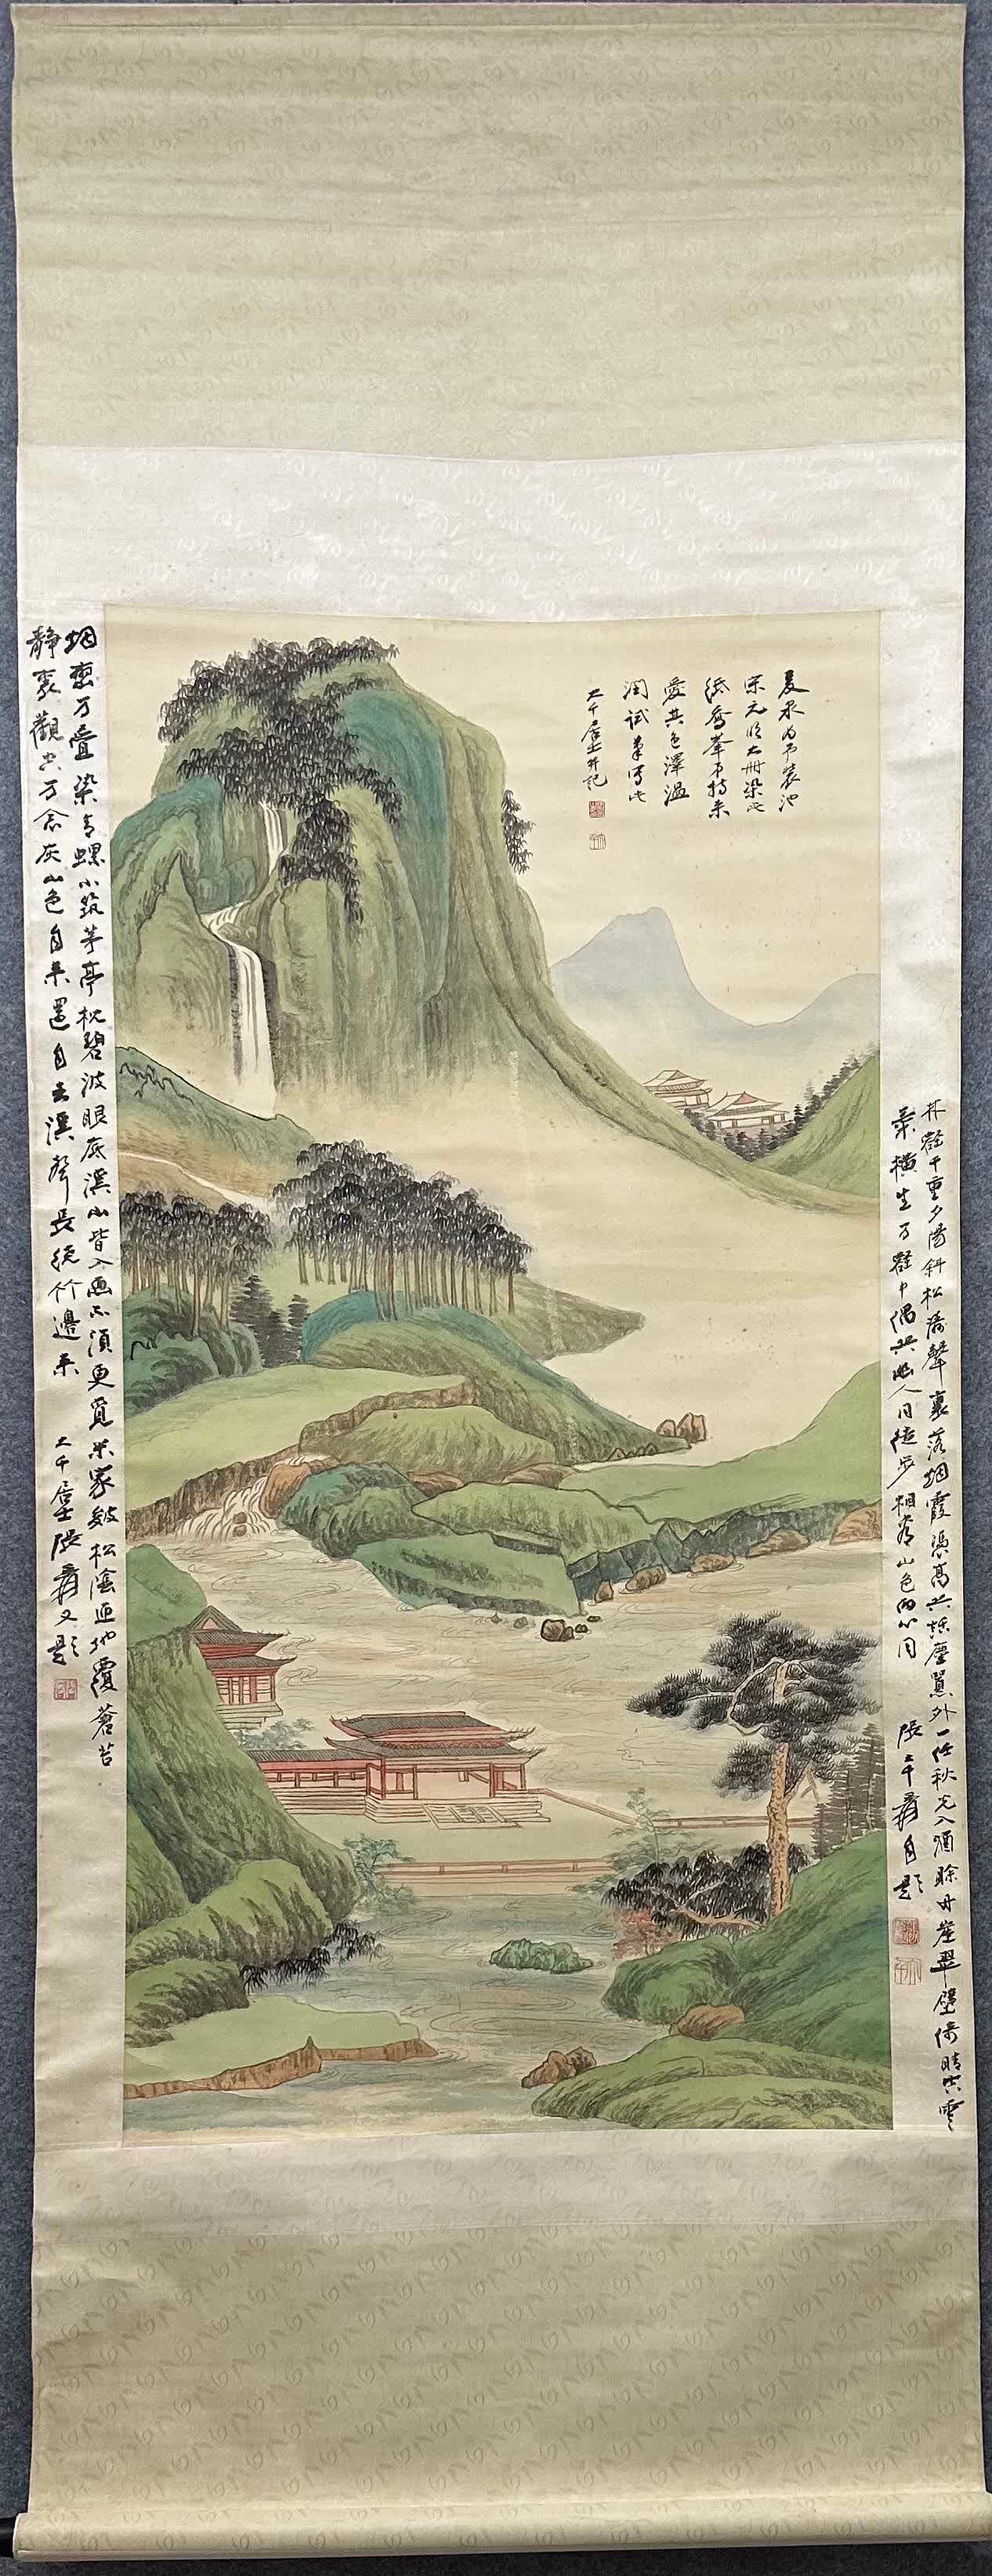 夏永為予裝池
宋元明大冊染此
紙喬峯予持來
愛其色澤溫
潤試筆寫此
大千居士并記
林壑千重夕陽斜松濤聲裏落烟霞憑高共話塵囂外一任秋光入酒賒丹崖翠壁倚晴空雲
氣橫生萬壑中偶共幽人同徒步相看山色兩心同
張大千爰自題
烟巒万疊染青螺小筑茅亭枕碧波眼底溪山皆入畫不須更覓米家皴松陰匝地覆蒼苔
靜裏觀空万念灰山色自來還自去溪聲長繞竹邊來
大千居士張爰又題